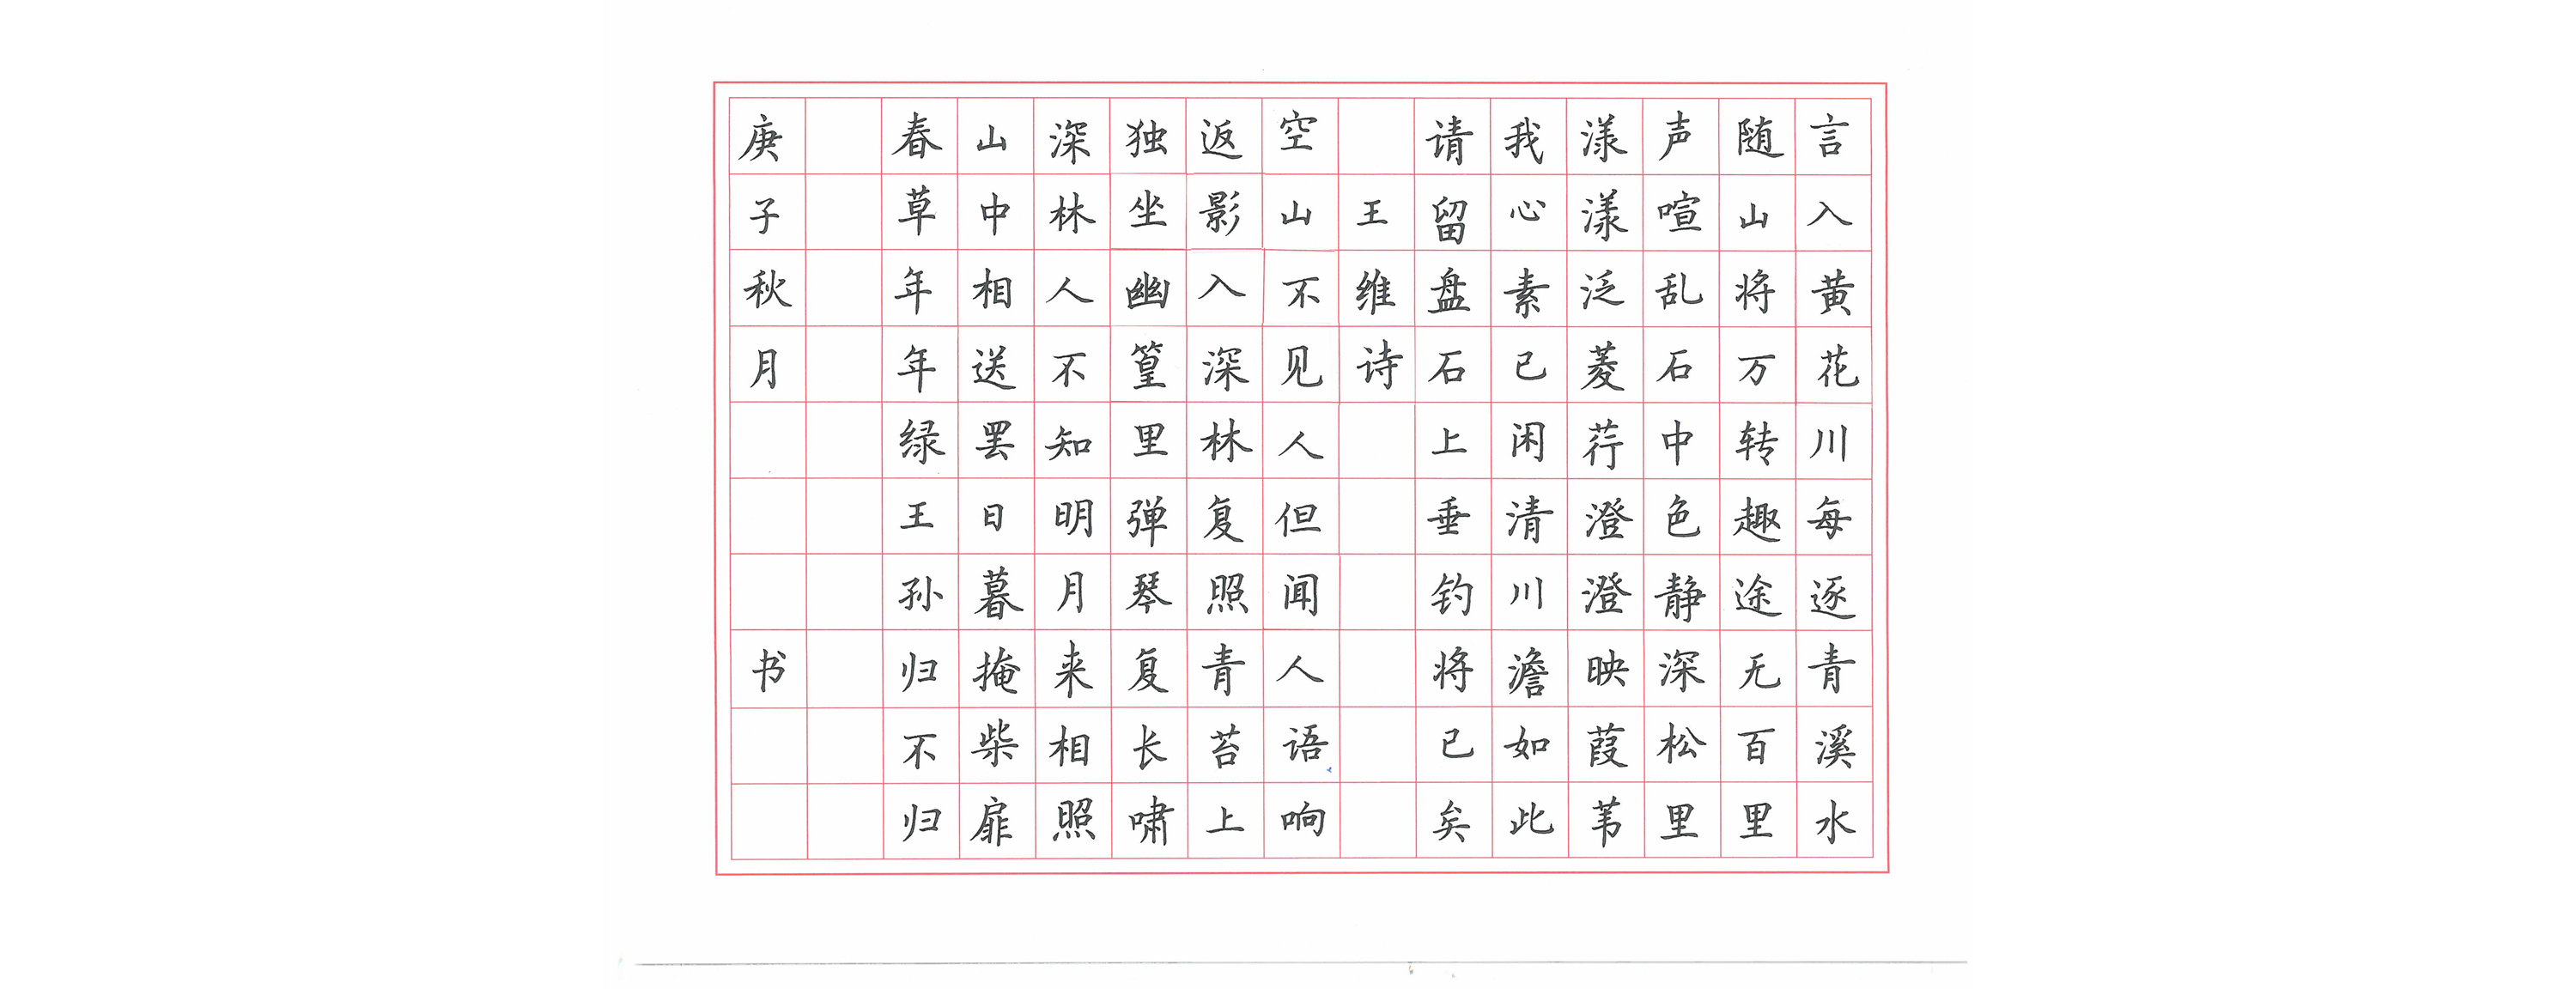 言入黄花川每逐青溪水
随山将万转趣途无百里
声喧乱石中色静深松里
漾漾泛菱荇澄澄映葭苇
我心素已闲清川澹如此
请留盘石上垂钓将已矣
王维诗
空山不见人但闻人语响
返影入深林复照青苔上
独坐幽篁里弹琴复长啸
深林人不知明月来相照
山中相送罢日暮掩柴扉
春草年年绿王孙归不归
庚子秋月 书